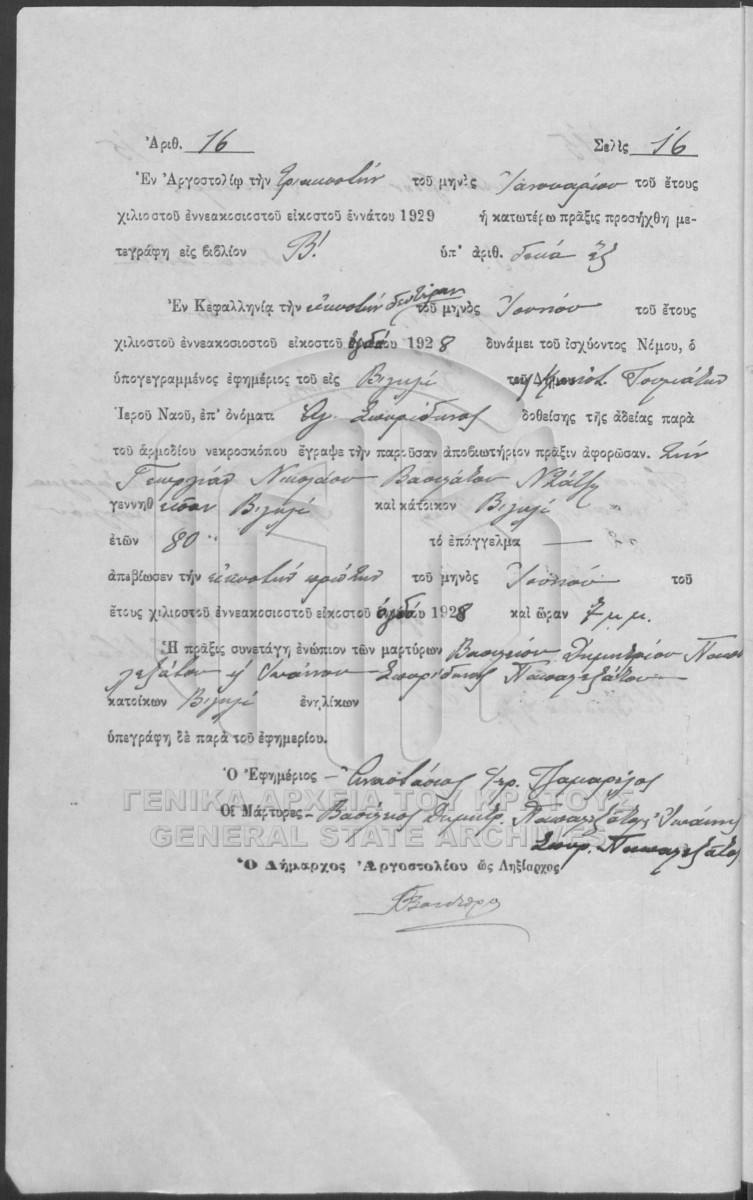 Ἀριθ. 16 Σελὶς 16
Ἐν Ἀργοστολίῳ τὴν τριακοστὴν τοῦ μηνὸς Ἰανουαρίου τοῦ ἔτους
χιλιοστοῦ ἐννεακοσιοστοῦ εἰκοστοῦ ἐννάτου 1929 ἡ κατωτέρω πρᾶξις προσήχθη με-
τεγράφη εἰς βιβλίον Β! ὑπ' ἀριθ. δεκα ἓξ
Ἐν Κεφαλληνίᾳ τὴν εἰκοστὴν δευτέραν τοῦ μηνὸς Ἰουνίου τοῦ ἔτους
χιλιοστοῦ ἐννεακοσιοστοῦ εἰκοστοῦ ὀγδόου 1928 δυνάμει τοῦ ἰσχύοντος Νόμου, ὁ
ὑπογεγραμμένος ἐφημέριος τοῦ εἰς τοῦ Κοινότ.
Ἱεροῦ Ναοῦ, ἐπ' ὀνόματι Ἁγ. Σπυρίδωνος δοθείσης τῆς ἀδείας παρὰ
τοῦ ἁρμοδίου νεκροσκόπου ἔγραψε τὴν παροῦσαν ἀποβιωτήριον πρᾶξιν ἀφορῶσαν. τὴν
Γεωργίαν Νικολάου
γεννηθεῖσαν καὶ κάτοικον
ἐτῶν 80 τὸ ἐπάγγελμα —
ἀπεβίωσεν τὴν εἰκοστὴν πρώτην τοῦ μηνὸς Ἰουνίου τοῦ
ἔτους χιλιοστοῦ ἐννεακοσιοστοῦ εἰκοστοῦ ὀγδόου 1928 καὶ ὥραν 7 μ.μ.
Ἡ πρᾶξις συνετάγη ἐνώπιον τῶν μαρτύρων Βασιλείου Δημητρίου Παπα
λεξάτου ἡ Ἰωάννου Σπυρίδωνος Παπαλεξάτου
κατοίκων ἐνηλίκων
ὑπεγράφη δὲ παρὰ τοῦ ἐφημερίου.
Ὁ Ἐφημέριος – Ἀναστάσιος Ἱερ. Τζαμαρέλος
ΓΕΝΙΚΑ ΑΡΧΕΙΑ ΤΟΥ ΚΡΑΤΟΥΣ
Οἱ Μάρτυρες – Βασίλειος Δημητρ. Παπαλεξάτος Ἰωάννης
GENERAL STATE ARCHIVES
Σπυρ. Παπαλεξάτος
Ὁ Δήμαρχος Ἀργοστολίου ὡς Ληξίαρχος